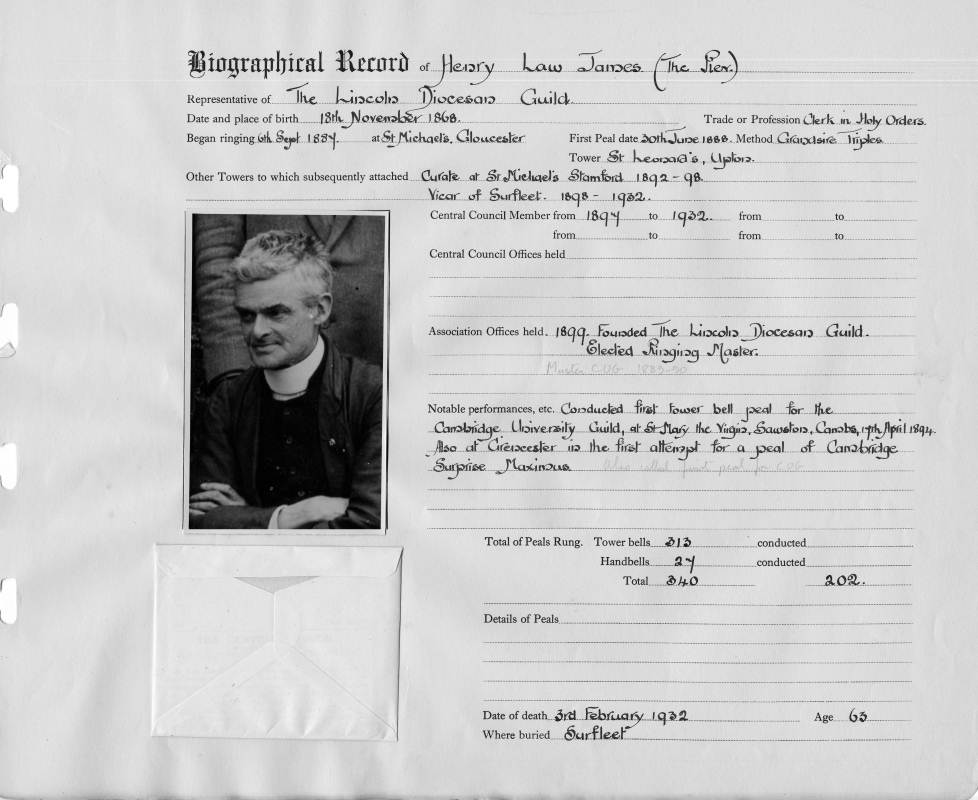 Biographical Record of Henry Law James (The Rev.)
Representative of The Lincoln Diocesan Guild.
Date and place of birth 18th November 1868. Trade or Profession Clerk in Holy Orders.
Began ringing 6th Sept 1887. at St Michael's, Gloucester First Peal date 30th June 1888. Method Grandsire Triples
Tower St Leonard's, Upton.
Other Towers to which subsequently attached Curate at St Michael's Stamford 1892 - 98.
Vicar of Surfleet. 1898 - 1932.
Central Council Member from 1897 to 1932. from to
from to from to
Central Council Offices held
Association Offices held. 1899. Founded The Lincoln Diocesan Guild.
Elected Ringing Master.
Master C.U.G.
Notable performances, etc. Conducted first tower bell peal for the
Cambridge University Guild, at St Mary the Virgin, Sawston, Cambs, 17th April 1894.
Also at Cirencester in the first attempt for a peal of Cambridge
Surprise Maximus. Also called first peal for C.U.G.
Total of Peals Rung. Tower bells 313 conducted
Handbells 27 conducted
Total 340 202.
Details of Peals
Date of death 3rd February 1932 Age 63
Where buried Surfleet